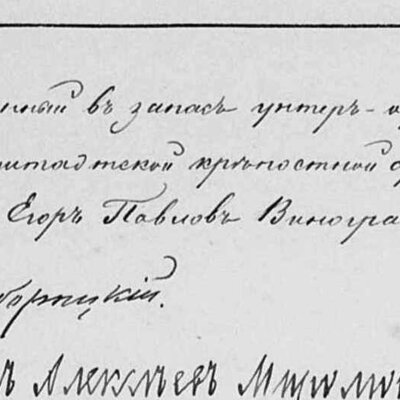 нный въ запасъ унтеръ-о
штадтской крѣпостной а
Егоръ Павловъ Виногра
ворицкій.
ъ Алексѣевъ